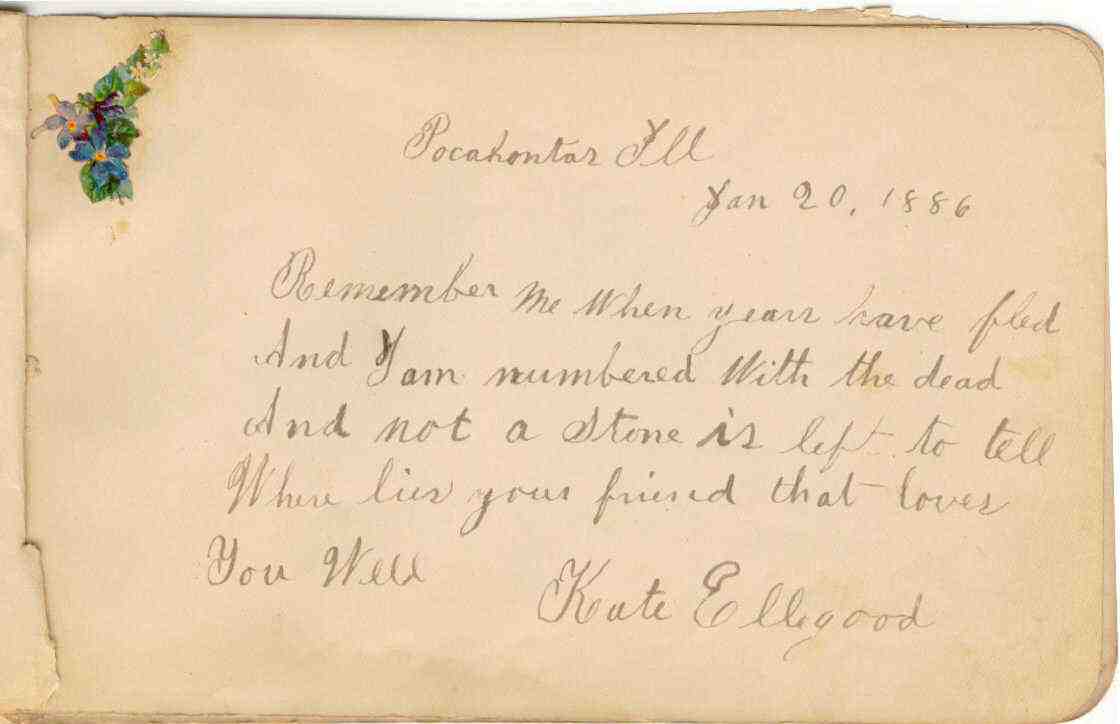 Pocahontas Ill
Jan 20, 1886
Remember Me When years have fled
And I am numbered With the dead
And not a Stone is left to tell
Where lies your friend that loves
You Well
Kate Ellegood